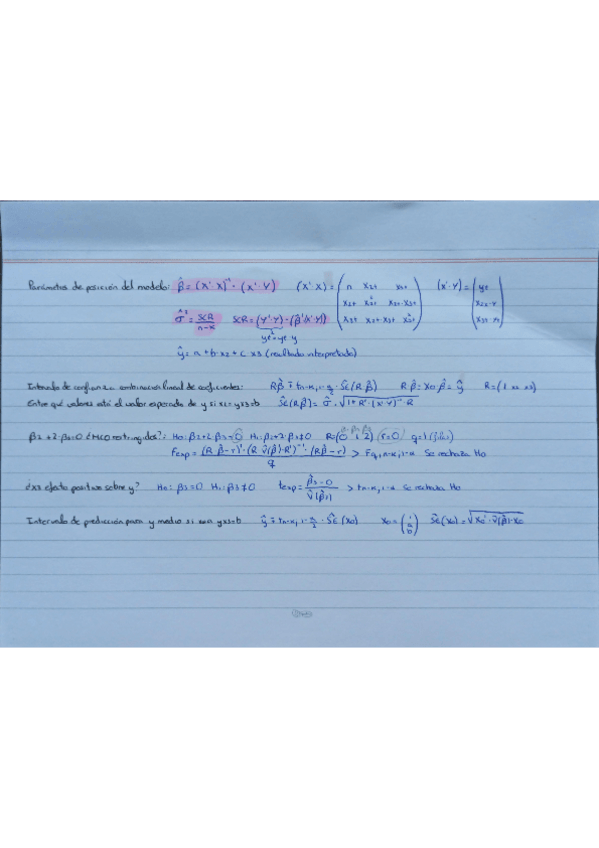 Parámetros de posición del modelo: β̂ = (X'·X)⁻¹ · (X'·Y) (X'·X) = ( n x2t x3t (X'·Y) = ( yt
x2t x2t² x2t·x3t x2t·Y
x3t x2t·x3t x3t² ) x3t·Y )
σ̂² = SCR / n-k SCR = (Y'·Y) - (β̂'(X'·Y))
ŷ = n + b·x2 + c·x3 (resultado interpretado)
Intervalo de confianza combinación lineal de coeficientes: Rβ̂ ± tn-k, 1-α/2 · ŜE(Rβ̂) Rβ̂ = X0·β̂ = ŷ R = (1 x2 x3)
Entre qué valores está el valor esperado de y si x2=a y x3=b ŜE(Rβ̂) = σ̂ · √1+R'·(X'·Y)⁻¹·R
β2+2·β3=0 ¿MCO restringidos?: H0: β2+2·β3=0 H1: β2+2·β3≠0 R=(0 1 2) r=0 q=1 (filas)
Fexp = (Rβ̂-r)'·(R V̂(β̂)·R')⁻¹·(Rβ̂-r) / q > Fq, n-k, 1-α Se rechaza H0
¿x3 efecto positivo sobre y? H0: β3=0 H1: β3≠0 texp = β̂3-0 / √V̂(β̂) > tn-k, 1-α Se rechaza H0
Intervalo de predicción para y medio si x2=a y x3=b ŷ ± tn-k, 1-α/2 · ŜE(X0) X0 = (1 a b) ŜE(X0) = √X0'·V̂(β̂)·X0